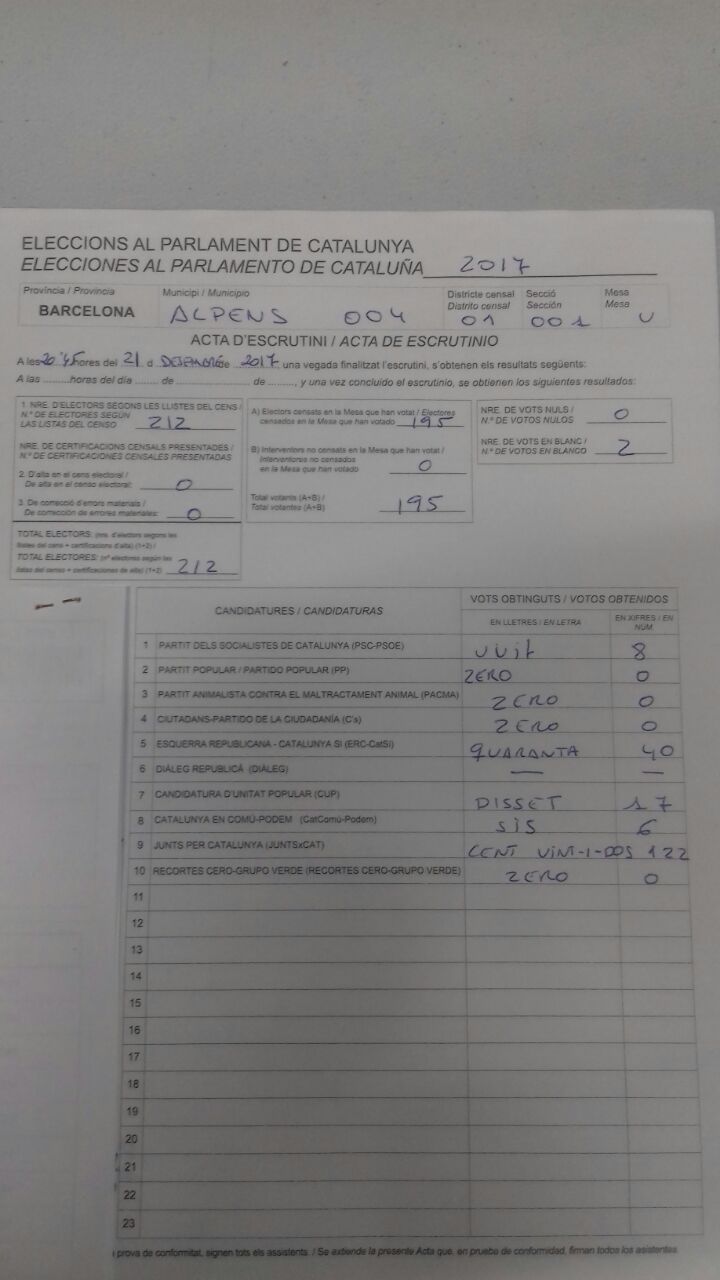 ELECCIONS AL PARLAMENT DE CATALUNYA
ELECCIONES AL PARLAMENTO DE CATALUÑA 2017
Província / Provincia Municipi / Municipio Districte censal Distrito censal Secció Sección Mesa Mesa
BARCELONA ALPENS 004 01 001 U
ACTA D'ESCRUTINI / ACTA DE ESCRUTINIO
A les 20'45 hores del 21 d DESEMBRE de 2017 una vegada finalitzat l'escrutini, s'obtenen els resultats següents:
A las .........horas del día ........ de .................... de ........, y una vez concluido el escrutinio, se obtienen los siguientes resultados:
1. NRE. D'ELECTORS SEGONS LES LLISTES DEL CENS /
N.º DE ELECTORES SEGÚN
LAS LISTAS DEL CENSO 212
NRE. DE CERTIFICACIONS CENSALS PRESENTADES /
N.º DE CERTIFICACIONES CENSALES PRESENTADAS
2. D'alta en el cens electoral /
De alta en el censo electoral: 0
3. De correcció d'errors materials /
De corrección de errores materiales: 0
TOTAL ELECTORS: (nre. d'electors segons les
llistes del cens + certificacions d'alta) (1+2) /
TOTAL ELECTORES: (nº electores según las
listas del censo + certificaciones de alta) (1+2) 212
A) Electors censats en la Mesa que han votat / Electores
censados en la Mesa que han votado 195
B) Interventors no censats en la Mesa que han votat /
Interventores no censados
en la Mesa que han votado 0
Total votants (A+B) /
Total votantes (A+B) 195
NRE. DE VOTS NULS /
N.º DE VOTOS NULOS 0
NRE. DE VOTS EN BLANC /
N.º DE VOTOS EN BLANCO 2
CANDIDATURES / CANDIDATURAS VOTS OBTINGUTS / VOTOS OBTENIDOS
EN LLETRES / EN LETRA EN XIFRES / EN NÚM.
1 PARTIT DELS SOCIALISTES DE CATALUNYA (PSC-PSOE) vuit 8
2 PARTIT POPULAR / PARTIDO POPULAR (PP) ZERO 0
3 PARTIT ANIMALISTA CONTRA EL MALTRACTAMENT ANIMAL (PACMA) ZERO 0
4 CIUTADANS-PARTIDO DE LA CIUDADANÍA (C's) ZERO 0
5 ESQUERRA REPUBLICANA - CATALUNYA SI (ERC-CatSí) QUARANTA 40
6 DIÀLEG REPUBLICÀ (DIÀLEG) — —
7 CANDIDATURA D'UNITAT POPULAR (CUP) DISSET 17
8 CATALUNYA EN COMÚ-PODEM (CatComú-Podem) SIS 6
9 JUNTS PER CATALUNYA (JUNTSxCAT) CENT VINT-I-DOS 122
10 RECORTES CERO-GRUPO VERDE (RECORTES CERO-GRUPO VERDE) ZERO 0
11
12
13
14
15
16
17
18
19
20
21
22
23
prova de conformitat, signen tots els assistents. / Se extiende la presente Acta que, en prueba de conformidad, firman todos los asistentes.